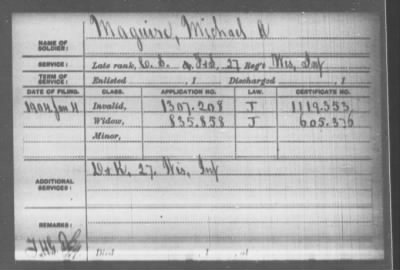 NAME OF SOLDIER: Maguire, Michael A
SERVICE: Late rank, C. S. & F&S, 27 Reg't Wis, Inf
TERM OF SERVICE: Enlisted , 1 Discharged , 1
DATE OF FILING. CLASS. APPLICATION NO. LAW. CERTIFICATE NO.
1904 Jan 4 Invalid, 1307.208 J 1119.553
Widow, 835.858 J 605.376
Minor,
ADDITIONAL SERVICES: D & K, 27. Wis, Inf
REMARKS:
Died , 1 , at